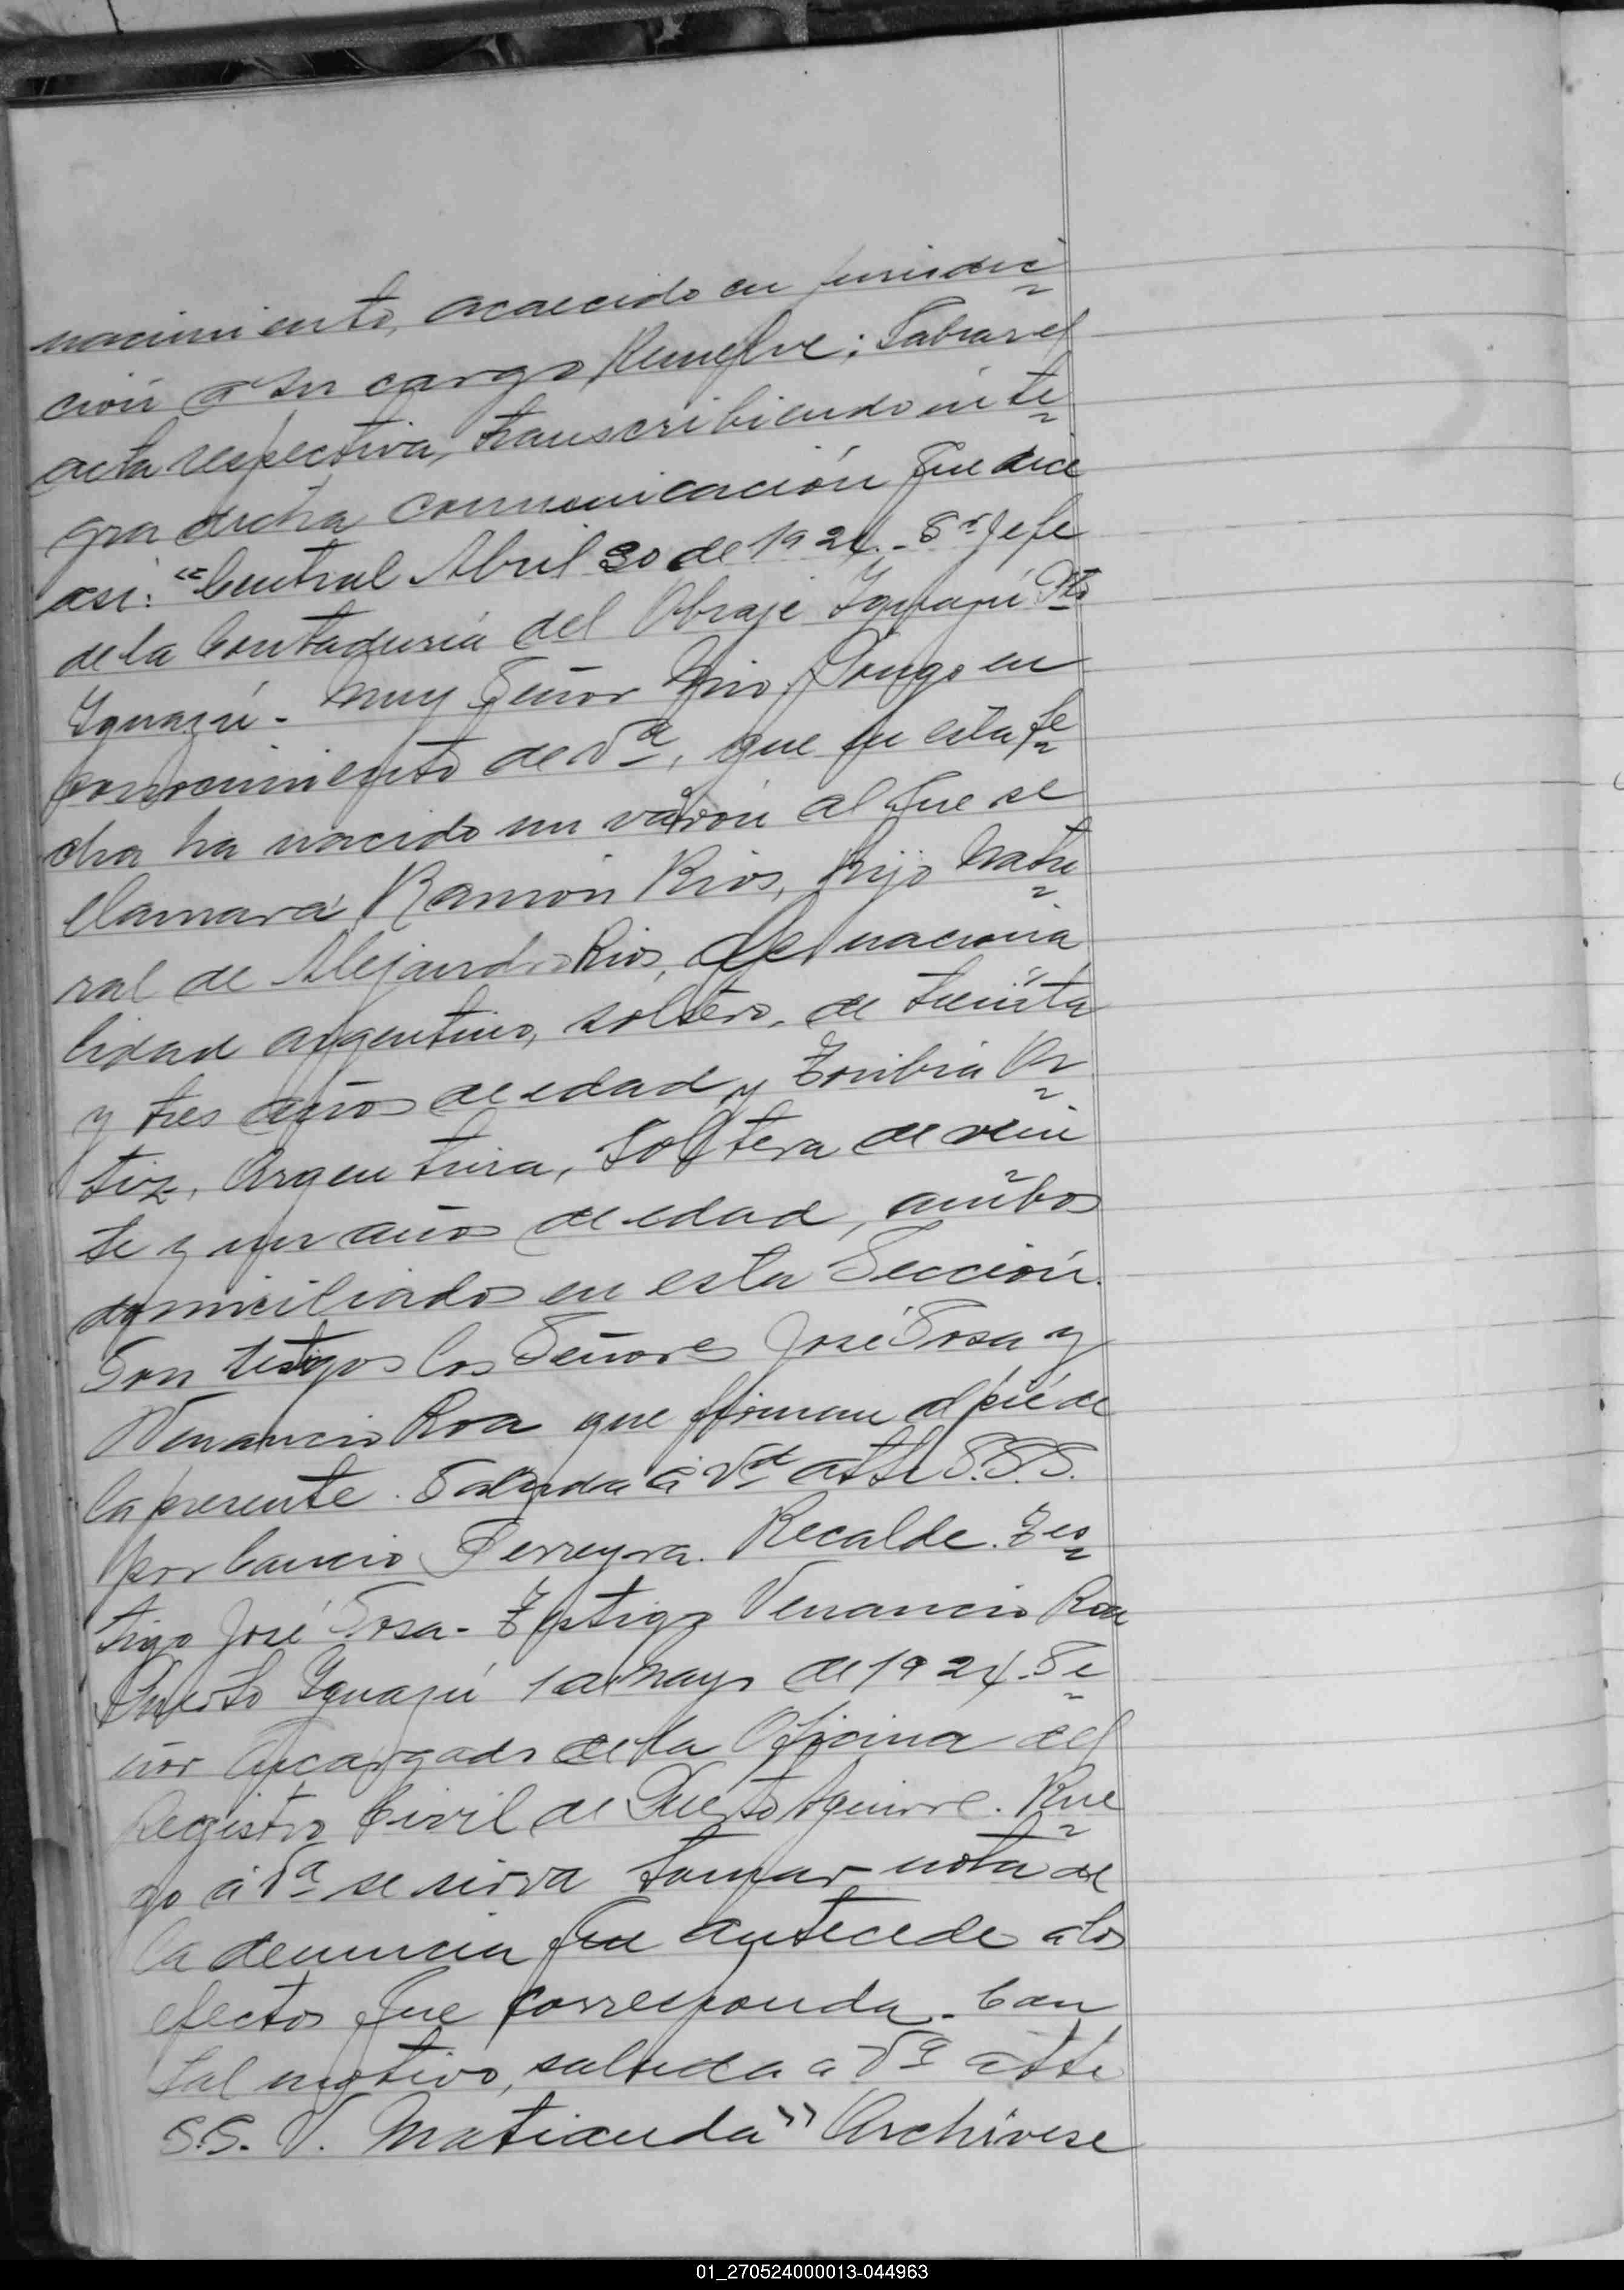 nacimiento, acaecido en jurisdic=
ción a su cargo Resuelve: Labrar el
acta respectiva, transcribiendo inte=
gra dicha comunicación que dice
asi: "Central Abril 30 de 1924.- Sr Jefe
de la Contaduría del Obraje Iguazú Pto
Iguazú - Muy Señor Mio. Pongo en
conocimiento de Vd, que en esta fe=
cha ha nacido un varón al que se
llamará Ramón Rios, hijo natu=
ral de Alejandro Rios, de naciona
lidad argentino, soltero, de treinta
y tres años de edad y Toribia Or=
tiz, Argentina, Soltera de vein=
te y un años de edad, ambos
domiciliados en esta Sección.
Son testigos los Señores José Sosa y
Venancio Roa que firman al pié de
la presente. Saluda á Vd atte S.S.S.
por Cancio Pereyra. Recalde. Tes=
tigo José Sosa - Testigo Venancio Roa
Puerto Iguazú 1 de Mayo de 1924. Se=
ñor Encargado de la Oficina del
Registro Civil de Puerto Aguirre. Rue=
go á Vd se sirva tomar nota de
la denuncia que antecede a los
efectos que corresponda. Con
tal motivo, saluda a Vd atte
S.S. V. Matiauda" Archívese
01_270524000013-044963